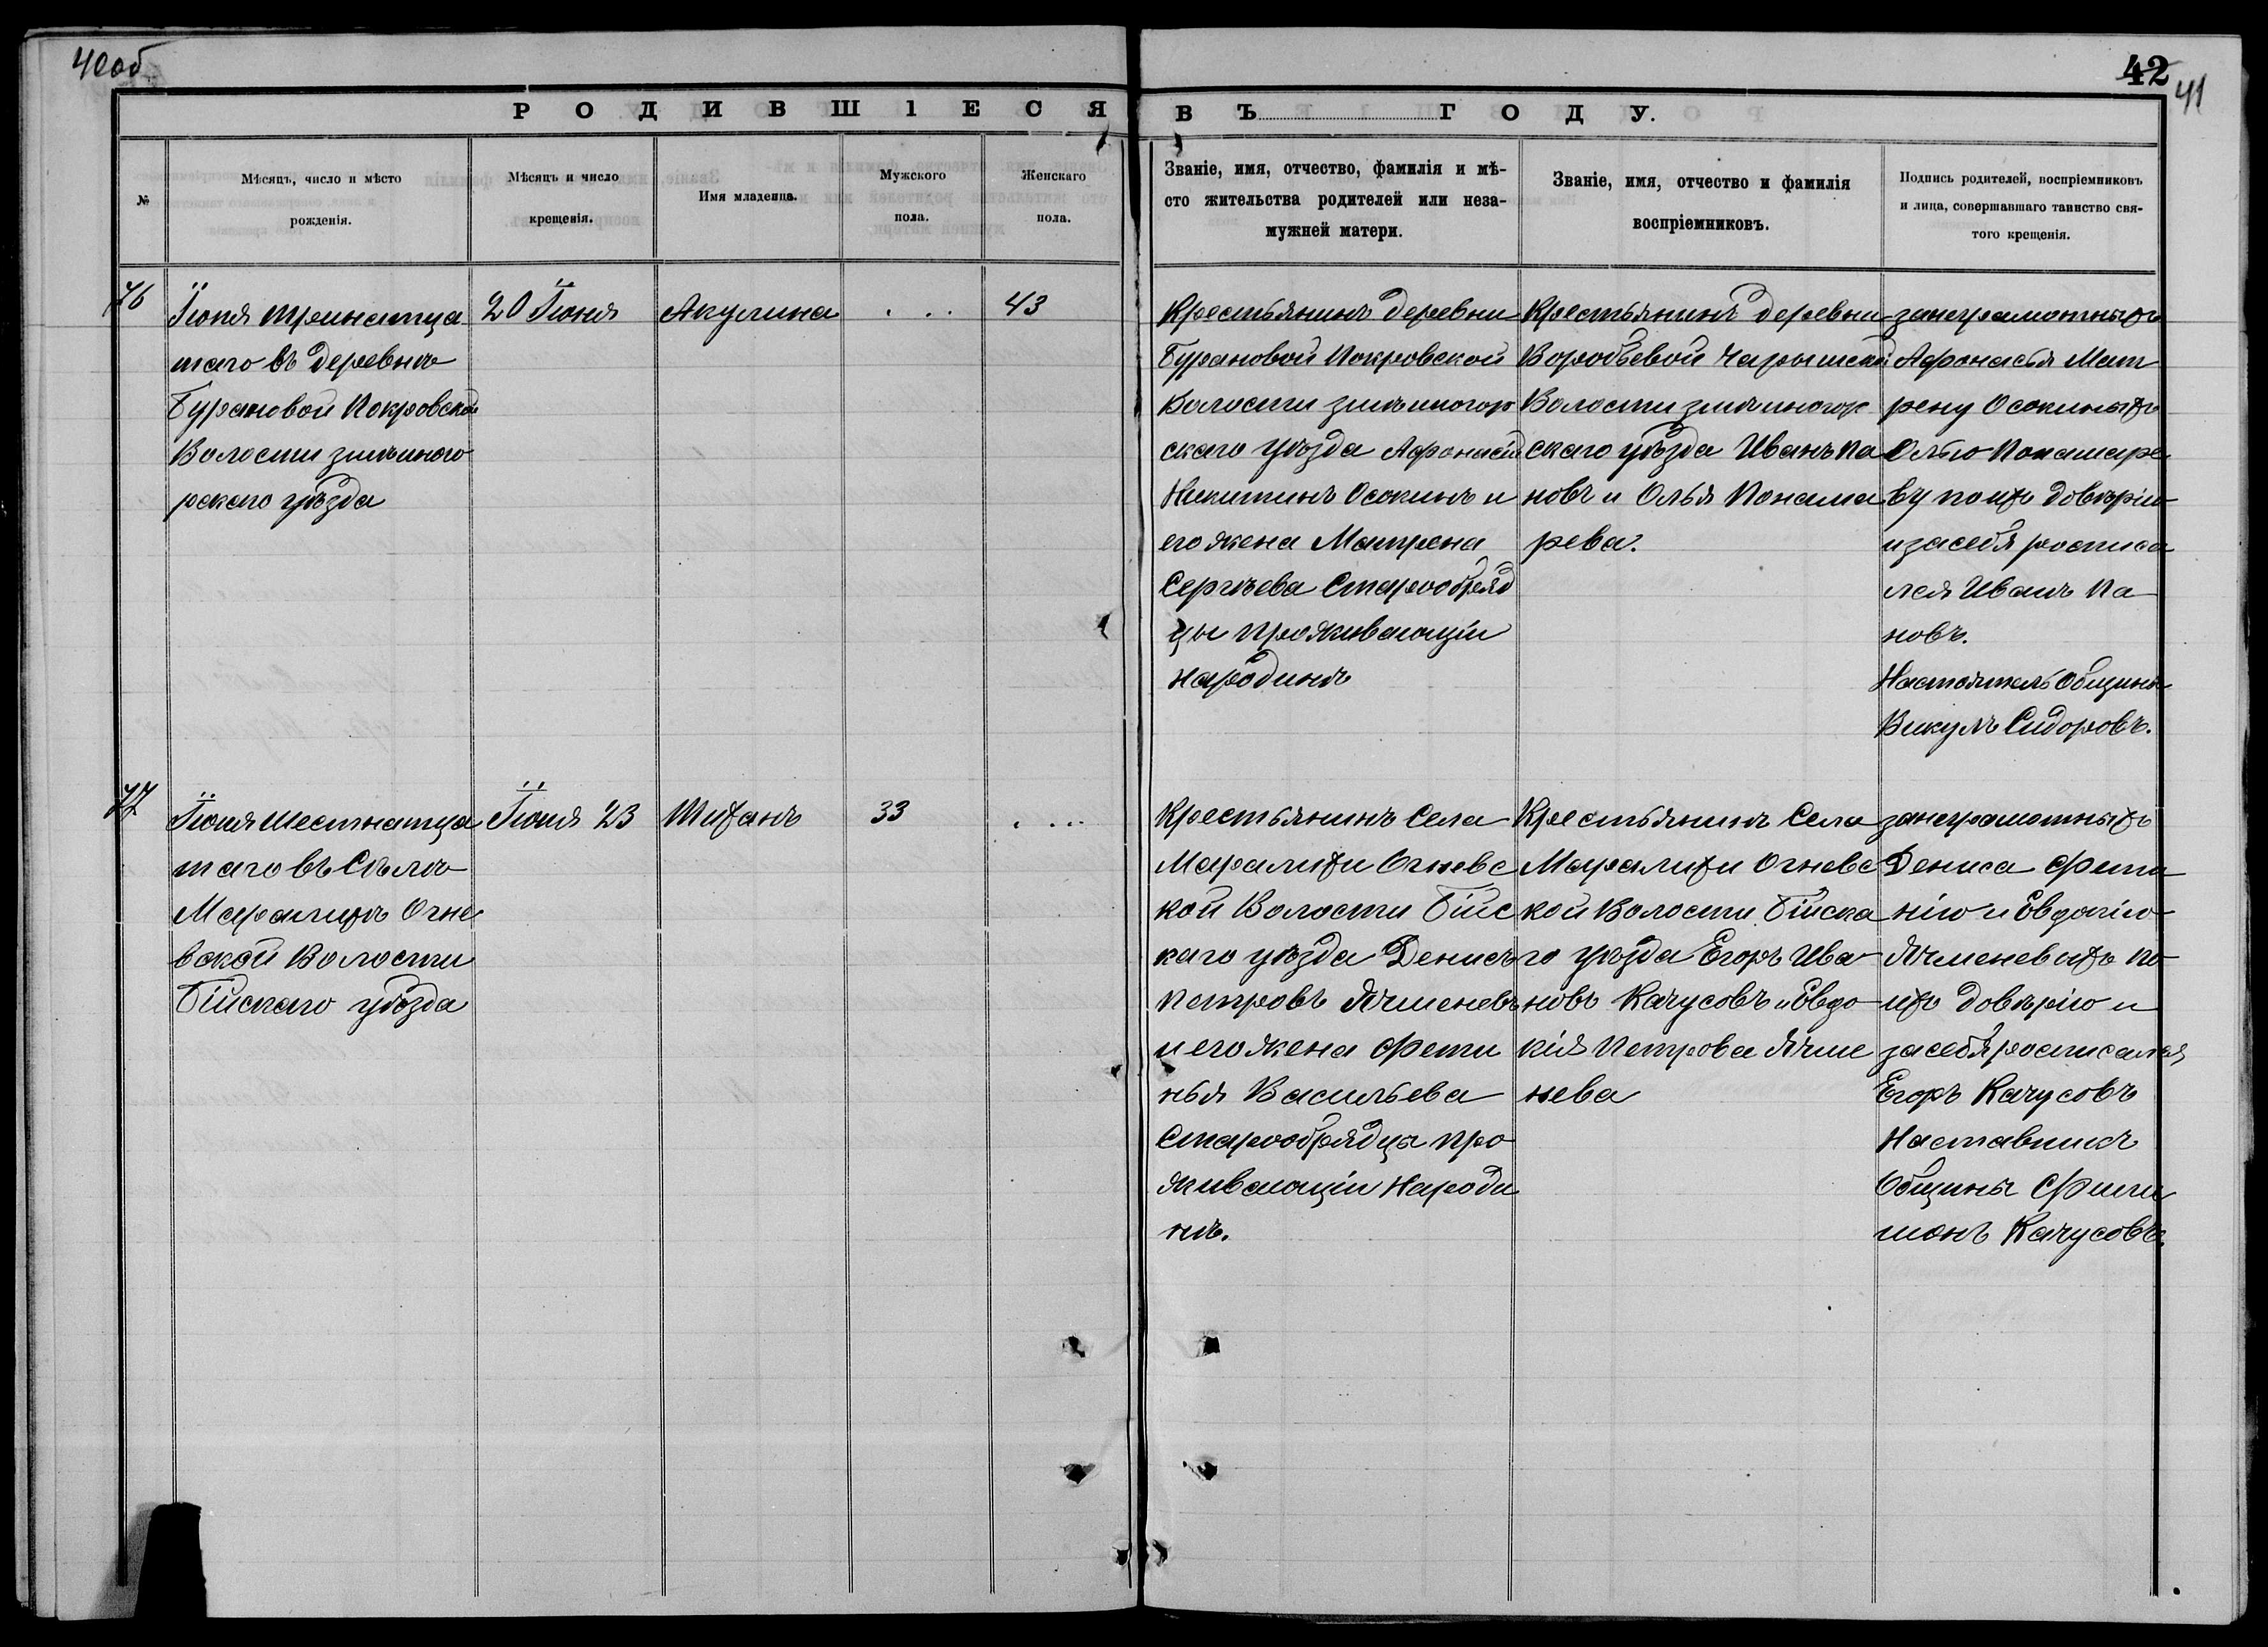 40об
42
41
РОДИВШІЕСЯ ВЪ ГОДУ.
№
Мѣсяцъ, число и мѣсто
рожденія.
Мѣсяцъ и число
крещенія.
Имя младенца.
Мужского
пола.
Женскаго
пола.
Званіе, имя, отчество, фамилія и мѣ-
сто жительства родителей или неза-
мужней матери.
Званіе, имя, отчество и фамилія
воспріемниковъ.
Подпись родителей, воспріемниковъ
и лица, совершавшаго таинство свя-
того крещенія.
76
Іюня тринатца
таго въ деревнѣ
Бурановой Покровской
Волости змѣиного
рскаго уѣзда
20 Іюня
Акулина
. . .
43
Крестьянинъ деревни
Бурановой Покровской
Волости змѣиногор
скаго уѣзда Афонасій
Никитинъ Осокинъ и
его жена Матрена
Сергѣева Старообряд
цы проживающіи
народинѣ
Крестьянинъ деревни
Воробьевой Чарышской
Волости змѣиногор
скаго уѣзда Иванъ Па
новъ и Олья Понама
рева.
занеграмотныхъ
Афонасья Мат
рену Осокиныхъ
Олью Понамаре
ву по ихъ довѣрію
и засебя росписа
лся Иванъ Па
новъ.
Настоятель Общины
Викулъ Сидоровъ.
77
Іюня Шестнатца
таго въ Сѣлѣ
Маралихѣ Огне
вской Волости
Бійскаго уѣзда
Іюня 23
Тиханъ
33
. . .
Крестьянинъ Села
Маралихи Огневс
кой Волости Бійс
каго уѣзда Денисъ
Петровъ Ячменевъ
и его жена Фети
нья Васильева
Старообрядцы про
живающіи народи
нѣ.
Крестьянинъ Села
Маралихи Огневс
кой Волости Бійска
го уѣзда Егоръ Ива
новъ Качусовъ и Евдо
кія Петрова Ячме
нева
занеграмотныхъ
Дениса Фети
нію и Евдокію
Ячменевыхъ по
ихъ довѣрію и
засебя росписался
Егоръ Качусовъ
Наставникъ
Общины Фили
монъ Качусовъ.